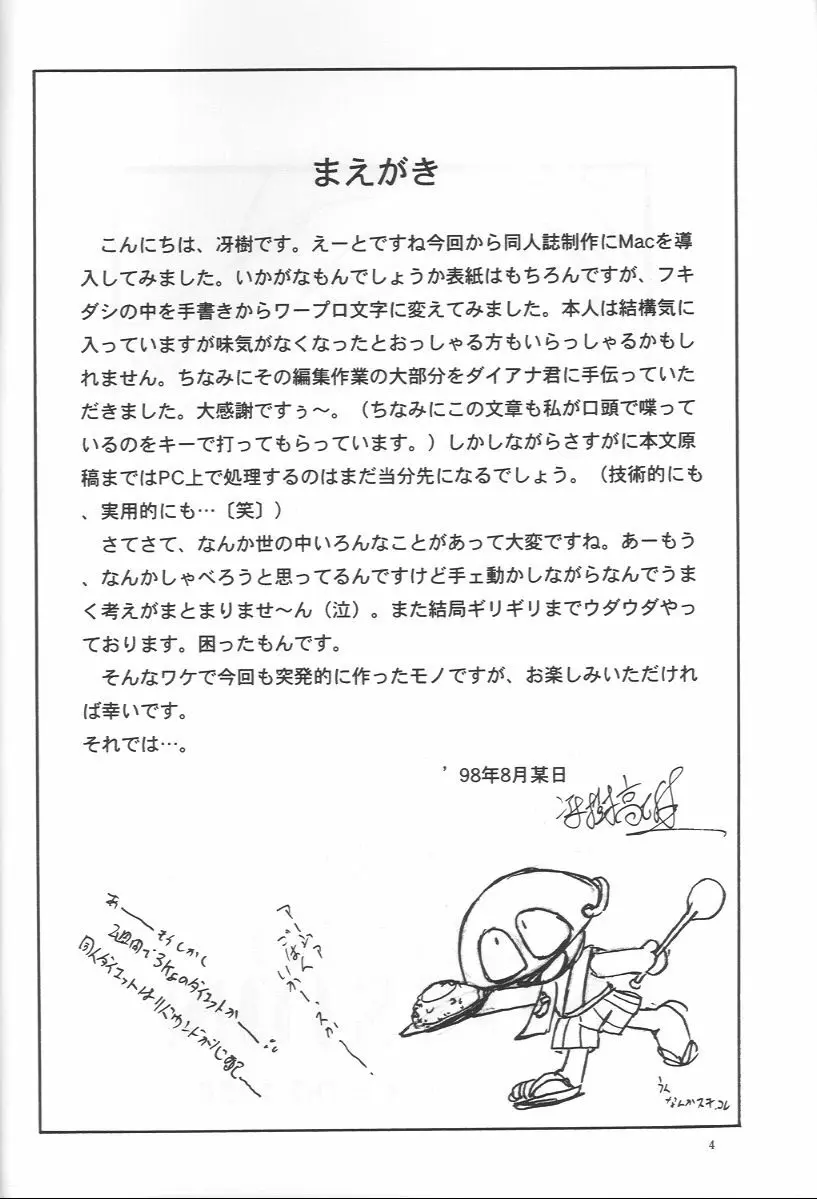 まえがき
こんにちは、冴樹です。えーとですね今回から同人誌制作にMacを導
入してみました。いかがなもんでしょうか表紙はもちろんですが、フキ
ダシの中を手書きからワープロ文字に変えてみました。本人は結構気に
入っていますが味気がなくなったとおっしゃる方もいらっしゃるかもし
れません。ちなみにその編集作業の大部分をダイアナ君に手伝っていた
だきました。大感謝ですぅ〜。（ちなみにこの文章も私が口頭で喋って
いるのをキーで打ってもらっています。）しかしながらさすがに本文原
稿まではPC上で処理するのはまだ当分先になるでしょう。（技術的にも
、実用的にも…〔笑〕）
さてさて、なんか世の中いろんなことがあって大変ですね。あーもう
、なんかしゃべろうと思ってるんですけど手ェ動かしながらなんでうま
く考えがまとまりませ〜ん（泣）。また結局ギリギリまでウダウダやっ
ております。困ったもんです。
そんなワケで今回も突発的に作ったモノですが、お楽しみいただけれ
ば幸いです。
それでは…。
’98年8月某日
冴樹高雄
あーーもくしかし
2週間で3kgのダイエットかーー
同人ダイエットはリバウンドが
ごはいかーー
うん
なんかスキ、コレ
4